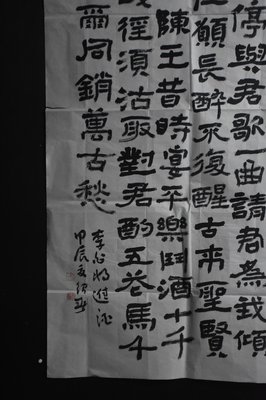 停與君歌一曲請君為我傾
願長醉不復醒古來聖賢
陳王昔時宴平樂鬥酒十千
徑須沽取對君酌五花馬千
爾同銷萬古愁
李白將進酒
甲辰